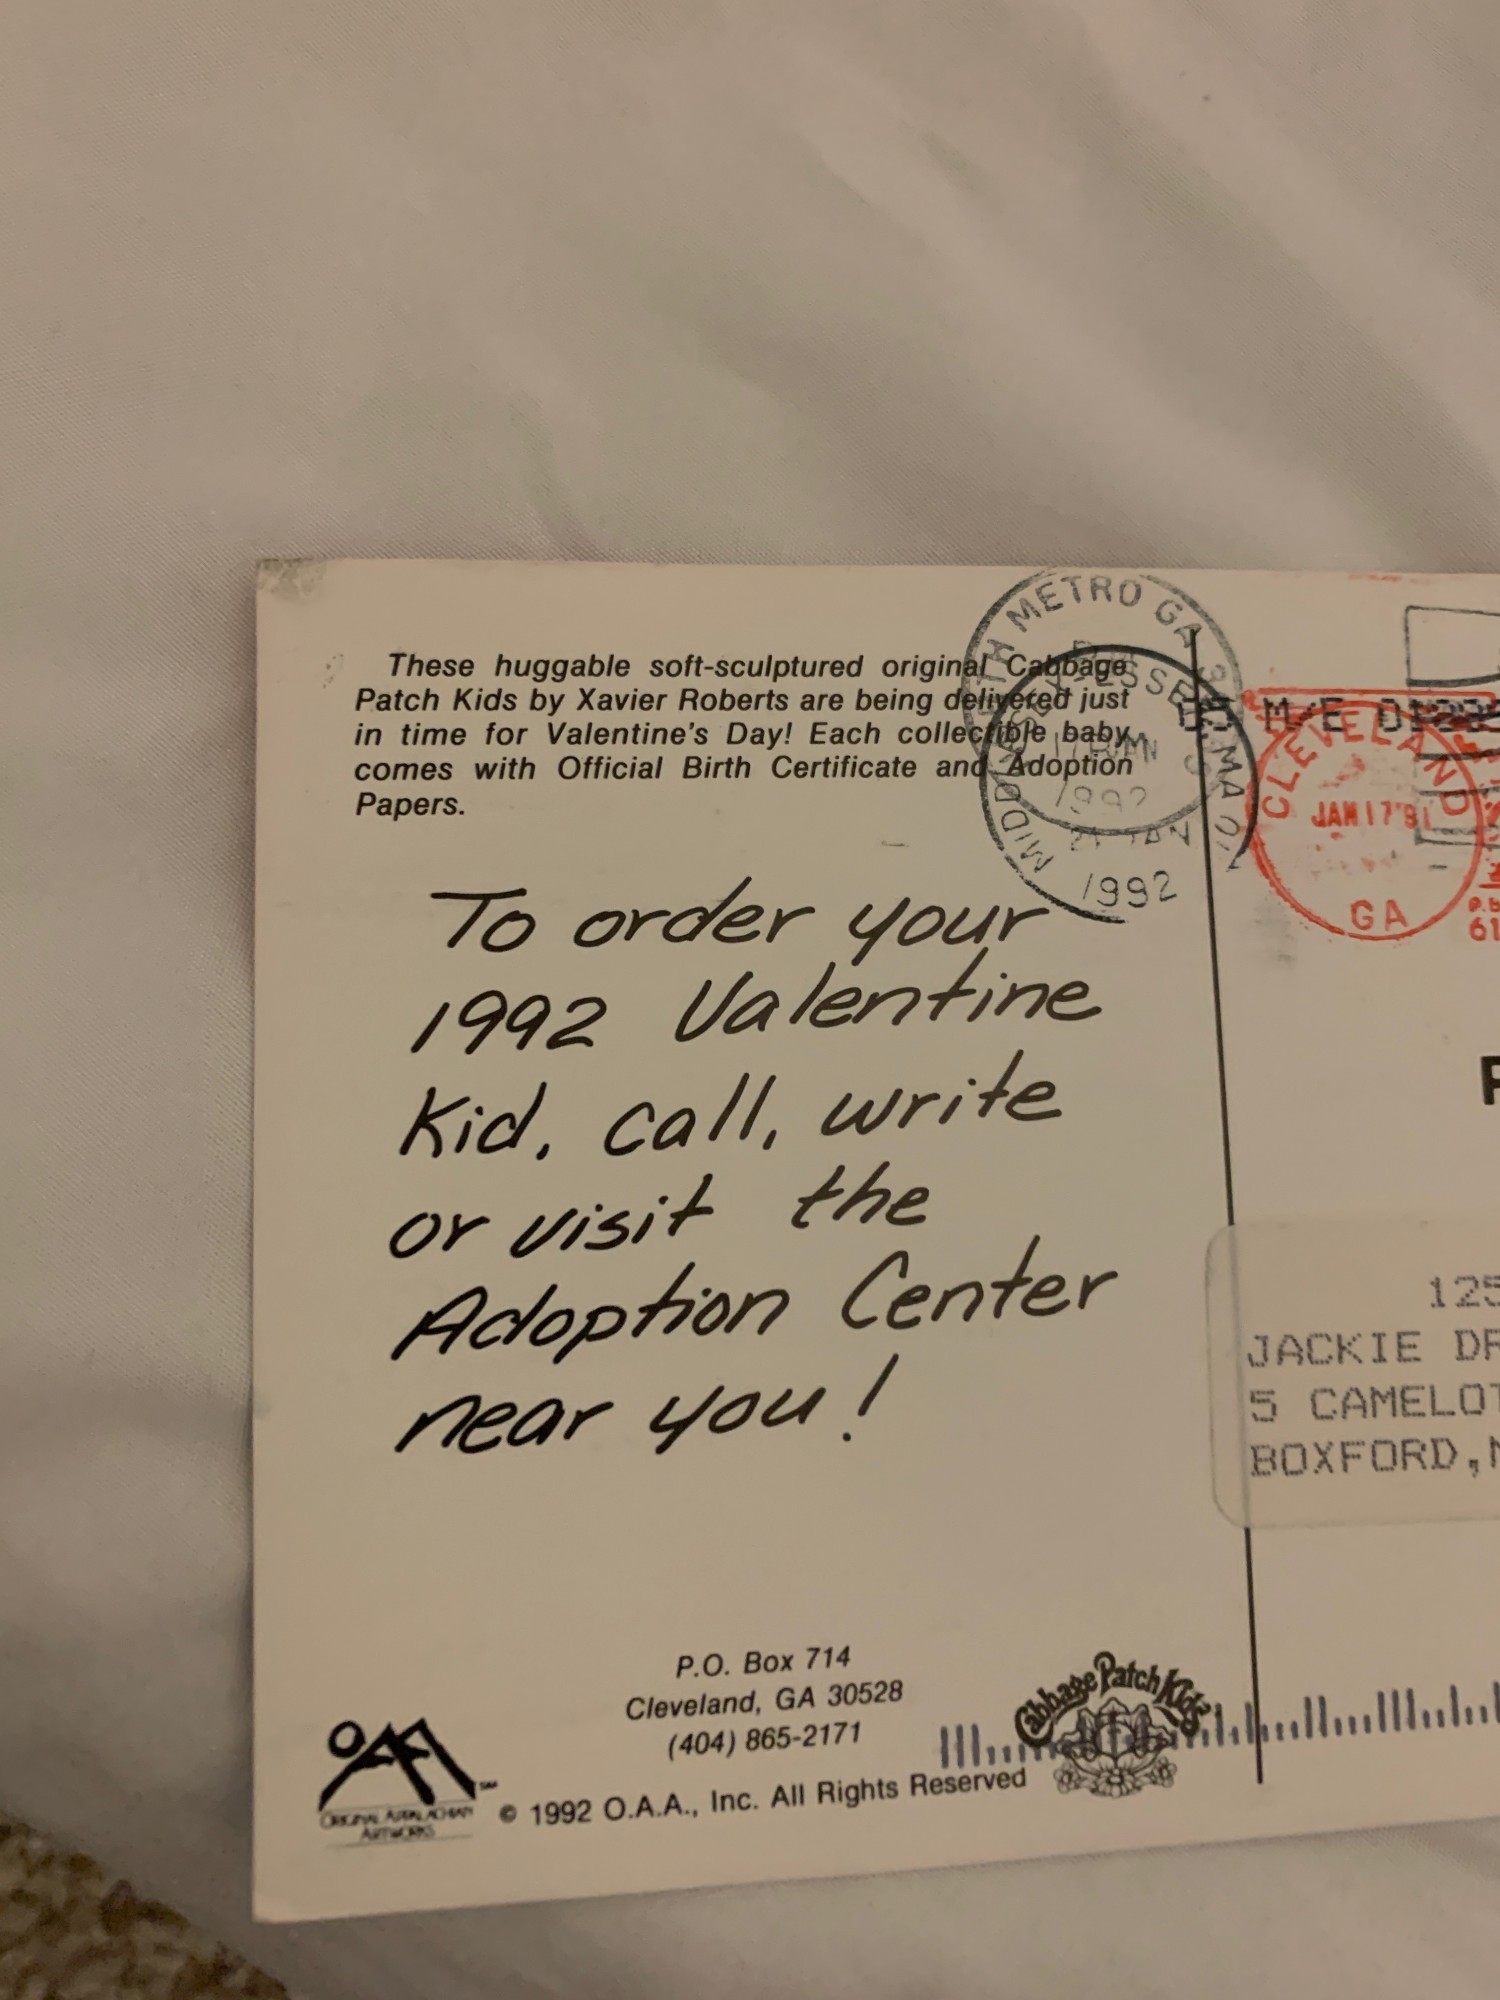 These huggable soft-sculptured original Cabbage
Patch Kids by Xavier Roberts are being delivered just
in time for Valentine's Day! Each collectible baby
comes with Official Birth Certificate and Adoption
Papers.
METRO GA
1992
21 JAN
1992
CLEVELAND
JAN 17
GA
To order your
1992 Valentine
Kid, call, write
or visit the
Adoption Center
near you!
125
JACKIE
5 CAMELOT
BOXFORD,
P.O. Box 714
Cleveland, GA 30528
(404) 865-2171
Cabbage Patch Kids
ORIGINAL APPALACHIAN
ARTWORKS
SM
© 1992 O.A.A., Inc. All Rights Reserved